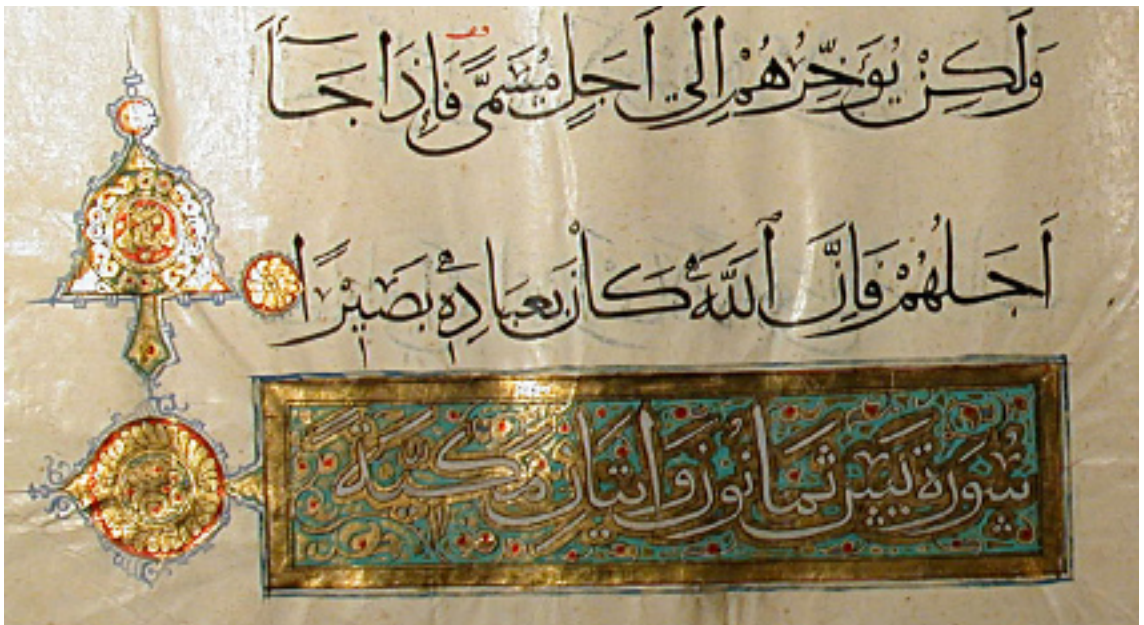 وَلَكِنْ يُوَخِّرُهُمْ اِلَي اَجَلٍ مُسَمًّى فَاِذَا جَاَ
اَجَلُهُمْ فَاِنَّ اللَّهَ كَانَ بِعِبَادِهِ بَصِيْرًا
سُوْرَة يٰسٓ ثَمَانُوْنَ وَاثْنَتَانِ مَكِّيَّة